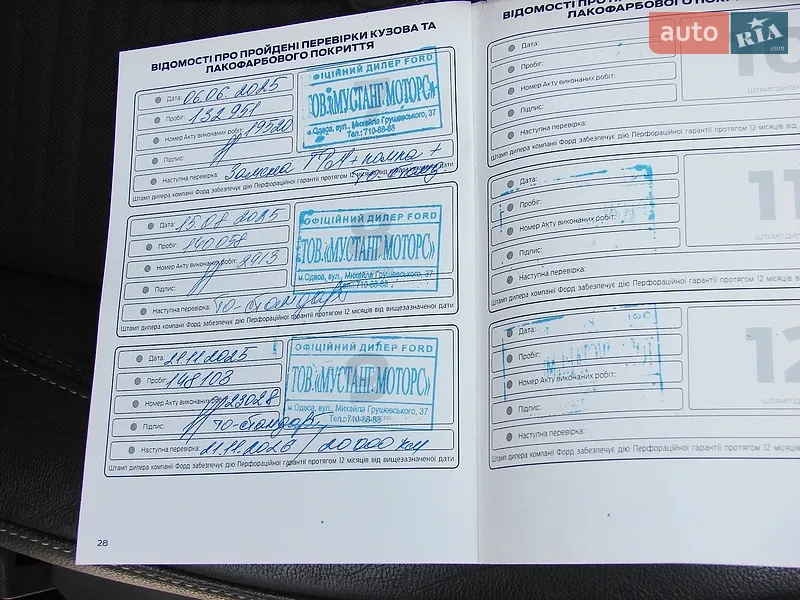 ВІДОМОСТІ ПРО ПРОЙДЕНІ ПЕРЕВІРКИ КУЗОВА ТА
ЛАКОФАРБОВОГО ПОКРИТТЯ
Дата: 06.06.2025
Пробіг: 132 951
Номер Акту виконаних робіт: 19520
Підпис:
Наступна перевірка: Заміна ГРМ + помпа +
Штамп дилера компанії Форд забезпечує дію Перфораційної гарантії протягом 12 місяців від вищезазначеної дати
ОФІЦІЙНИЙ ДИЛЕР FORD
ТОВ.«МУСТАНГ МОТОРС»
м.Одеса, вул., Михайла Грушевського, 37
Тел.:710-88-88
Дата: 15.08.2025
Пробіг: 140 058
Номер Акту виконаних робіт: 2913
Підпис:
Наступна перевірка: ТО-стандарт
Штамп дилера компанії Форд забезпечує дію Перфораційної гарантії протягом 12 місяців від вищезазначеної дати
8
ОФІЦІЙНИЙ ДИЛЕР FORD
ТОВ.«МУСТАНГ МОТОРС»
м.Одеса, вул., Михайла Грушевського, 37
Тел.:710-88-88
Дата: 21.11.2025
Пробіг: 148103
Номер Акту виконаних робіт: 23028
Підпис: ТО-стандарт
Наступна перевірка: 21.11.2026 / 20 000 км
Штамп дилера компанії Форд забезпечує дію Перфораційної гарантії протягом 12 місяців від вищезазначеної дати
9
ОФІЦІЙНИЙ ДИЛЕР FORD
ТОВ.«МУСТАНГ МОТОРС»
м.Одеса, вул., Михайла Грушевського, 37
Тел.:710-88-88
28
ВІДОМОСТІ ПРО
ЛАКОФАРБОВОГО ПОКРИТ
Дата:
Пробіг:
Номер Акту виконаних робіт:
Підпис:
Наступна перевірка:
Штамп дилера компанії Форд забезпечує дію Перфораційної гарантії протягом 12 місяців від
10
ШТАМП ДИЛЕ
Дата:
Пробіг:
Номер Акту виконаних робіт:
Підпис:
Наступна перевірка:
Штамп дилера компанії Форд забезпечує дію Перфораційної гарантії протягом 12 місяців від
11
ШТАМП ДИЛЕ
Дата:
Пробіг:
Номер Акту виконаних робіт:
Підпис:
Наступна перевірка:
Штамп дилера компанії Форд забезпечує дію Перфораційної гарантії протягом 12 місяців від
12
ШТАМП ДИ
auto RIA .com